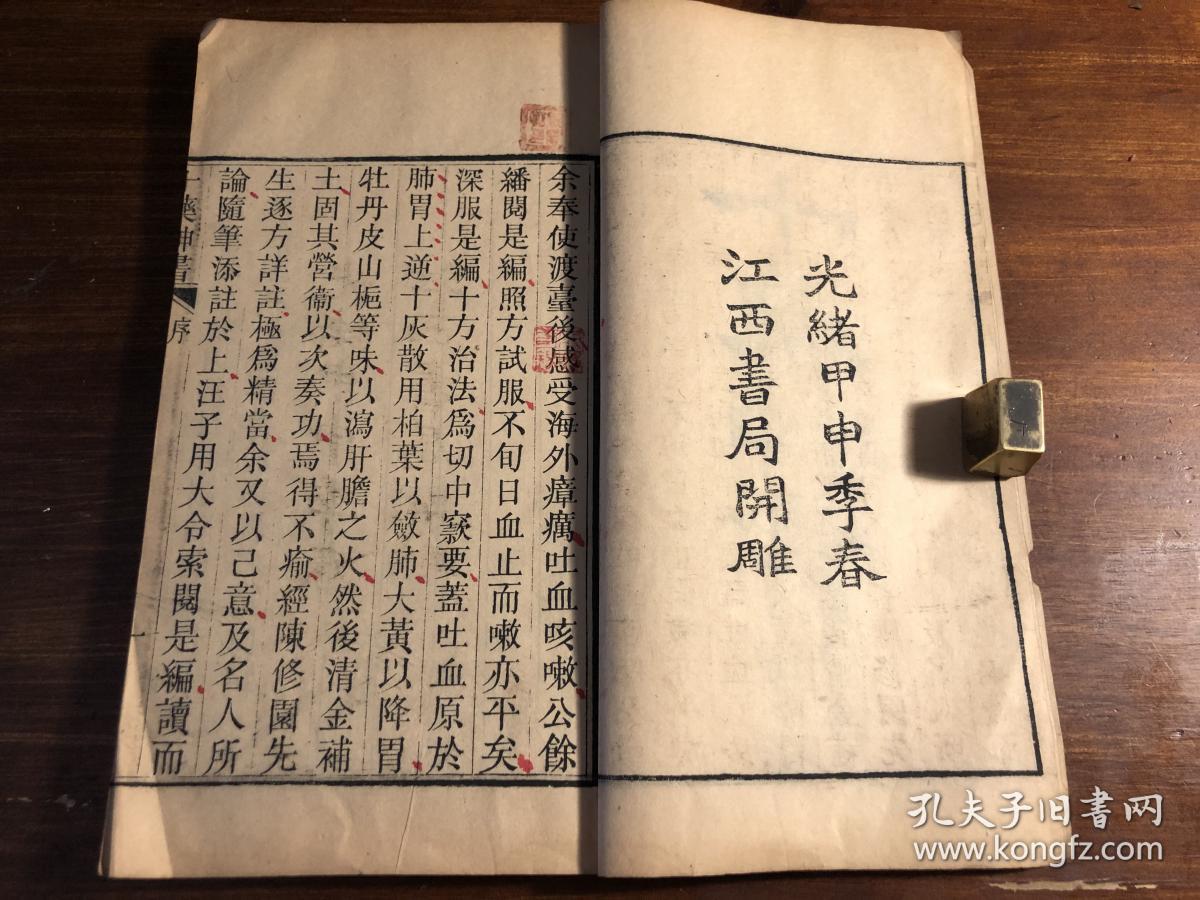 光緒甲申季春
江西書局開雕
余奉使渡臺後感受海外瘴癘吐血咳嗽公餘
繙閱是編照方試服不旬日血止而嗽亦平矣
深服是編十方治法為切中窾要蓋吐血原於
肺胃上逆十灰散用柏葉以斂肺大黃以降胃
牡丹皮山梔等味以瀉肝膽之火然後清金補
土固其營衞以次奏功焉得不瘉經陳修園先
生逐方詳註極為精當余又以己意及名人所
論隨筆添註於上汪子用大令索閱是編讀而
序
孔夫子旧書网
www.kongfz.com